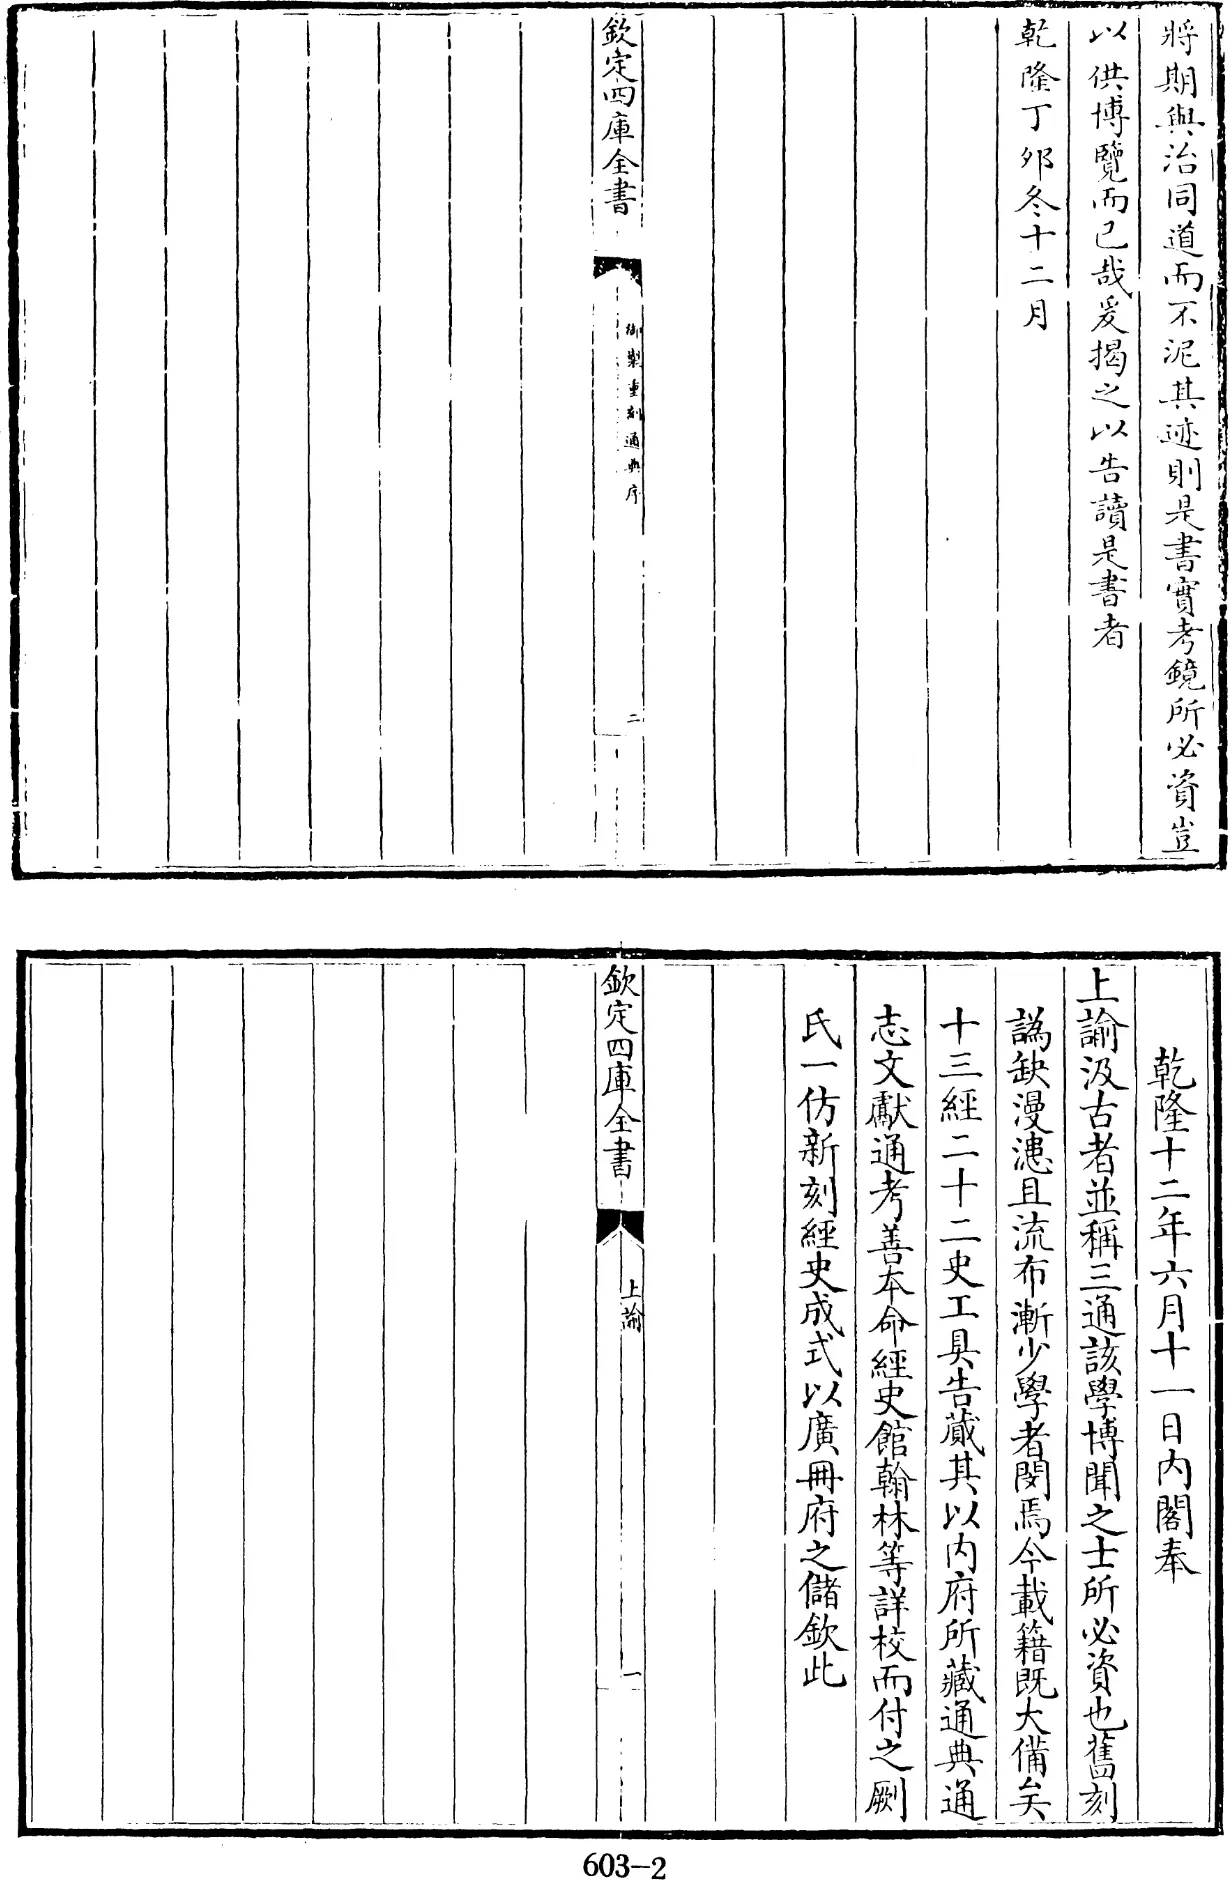 將期與治同道而不泥其迹則是書實考鏡所必資豈
以供博覽而已哉爰揭之以告讀是書者
乾隆丁夘冬十二月
欽定四庫全書
御製重刻通典序
二
乾隆十二年六月十一日内閣奉
上諭汲古者並稱三通該學博聞之士所必資也舊刻
譌缺漫漶且流布漸少學者閔焉今載籍既大備矣
十三經二十二史工具告蕆其以内府所藏通典通
志文獻通考善本命經史館翰林等詳校而付之劂
氏一仿新刻經史成式以廣冊府之儲欽此
欽定四庫全書
上諭
一
603-2